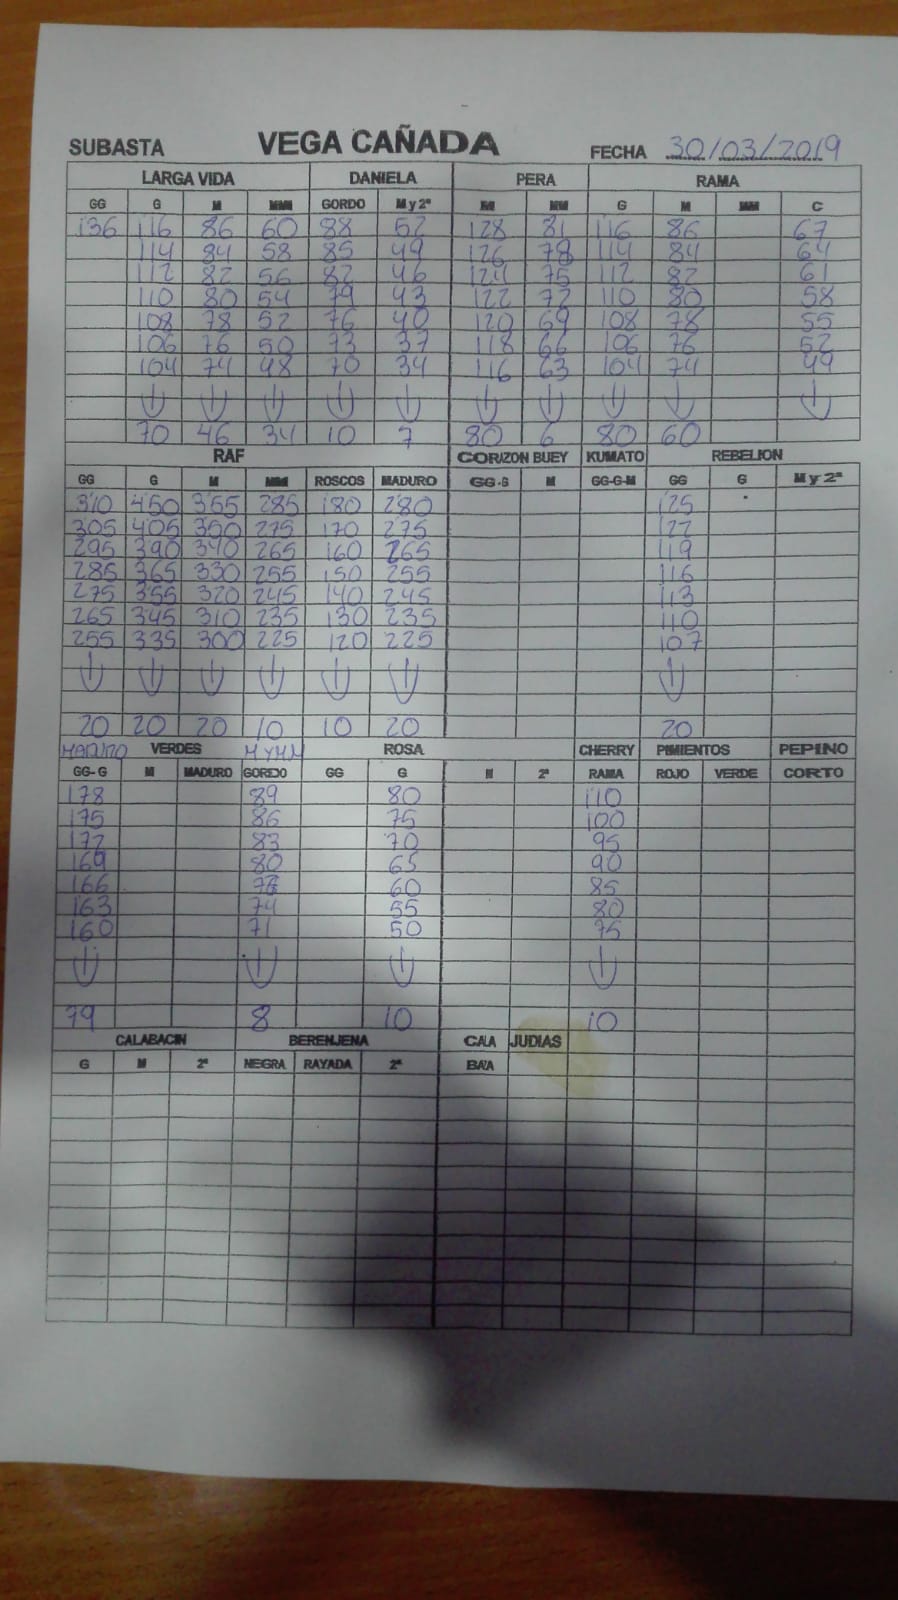 SUBASTA VEGA CAÑADA FECHA 30/03/2019
LARGA VIDA DANIELA PERA RAMA
GG G M MM GORDO M y 2ª M MM G M MM C
136 116 86 60 88 52 128 81 116 86 67
114 84 58 85 49 126 78 114 84 64
112 82 56 82 46 124 75 112 82 61
110 80 54 79 43 122 72 110 80 58
108 78 52 76 40 120 69 108 78 55
106 76 50 73 37 118 66 106 76 52
104 74 48 70 34 116 63 104 74 49
70 46 34 10 7 80 6 80 60
RAF CORIZON BUEY KUMATO REBELION
GG G M MM ROSCOS MADURO GG-G M GG-G-M GG G M y 2ª
310 450 355 285 180 280 125
305 405 350 275 170 275 122
295 390 340 265 160 265 119
285 365 330 255 150 255 116
275 355 320 245 140 245 113
265 345 310 235 130 235 110
255 335 300 225 120 225 107
20 20 20 10 10 20 20
MADURO VERDES M Y MM ROSA CHERRY PIMIENTOS PEPINO
GG-G M MADURO GORDO GG G M 2ª RAMA ROJO VERDE CORTO
178 89 80 110
175 86 75 100
172 83 70 95
169 80 65 90
166 60 85
163 74 55 80
160 71 50 75
79 8 10 10
CALABACIN BERENJENA CAJA JUDIAS
G M 2ª NEGRA RAYADA 2ª BAJA